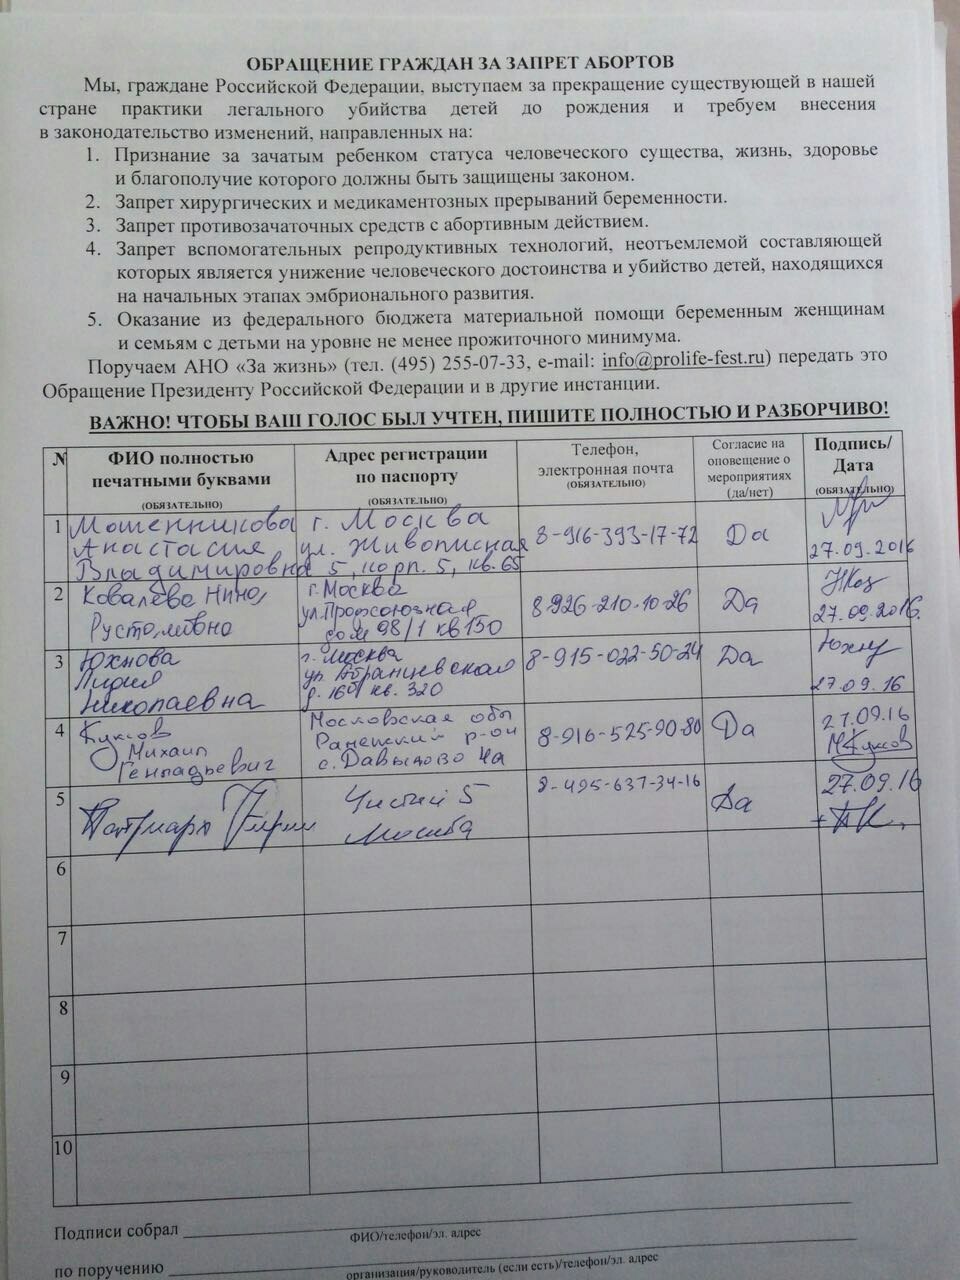 ОБРАЩЕНИЕ ГРАЖДАН ЗА ЗАПРЕТ АБОРТОВ
Мы, граждане Российской Федерации, выступаем за прекращение существующей в нашей
стране практики легального убийства детей до рождения и требуем внесения
в законодательство изменений, направленных на:
1. Признание за зачатым ребенком статуса человеческого существа, жизнь, здоровье
и благополучие которого должны быть защищены законом.
2. Запрет хирургических и медикаментозных прерываний беременности.
3. Запрет противозачаточных средств с абортивным действием.
4. Запрет вспомогательных репродуктивных технологий, неотъемлемой составляющей
которых является унижение человеческого достоинства и убийство детей, находящихся
на начальных этапах эмбрионального развития.
5. Оказание из федерального бюджета материальной помощи беременным женщинам
и семьям с детьми на уровне не менее прожиточного минимума.
Поручаем АНО «За жизнь» (тел. (495) 255-07-33, e-mail: info@prolife-fest.ru) передать это
Обращение Президенту Российской Федерации и в другие инстанции.
ВАЖНО! ЧТОБЫ ВАШ ГОЛОС БЫЛ УЧТЕН, ПИШИТЕ ПОЛНОСТЬЮ И РАЗБОРЧИВО!
N
ФИО полностью
печатными буквами
(ОБЯЗАТЕЛЬНО)
Адрес регистрации
по паспорту
(ОБЯЗАТЕЛЬНО)
Телефон,
электронная почта
(ОБЯЗАТЕЛЬНО)
Согласие на
оповещение о
мероприятиях
(да/нет)
Подпись/
Дата
(ОБЯЗАТЕЛЬНО)
1
Мошенникова
Анастасия
Владимировна
г. Москва
ул. Живописная
5, корп. 5, кв. 65
8-916-393-17-72
Да
27.09.2016
2
Ковалева Нина
Рустамовна
г. Москва
ул. Профсоюзная
дом 98/1 кв 150
8-926-210-10-26
Да
27.09.2016.
3
Юхнова
Лидия
Николаевна
г. Москва
ул. Абрамцевская
кв. 320
8-915-022-50-24
Да
Юхну
27.09.16
4
Куксов
Михаил
Геннадьевич
Московская обл
Раменский р-он
с. Давыдово 4а
8-916-525-90-80
Да
27.09.16
МКуксов
5
Патриарх Кирилл
Чистый 5
Москва
8-495-637-34-16
Да
27.09.16
+ПК.
6
7
8
9
10
Подписи собрал
ФИО/телефон/эл. адрес
по поручению
организация/руководитель (если есть)/телефон/эл. адрес